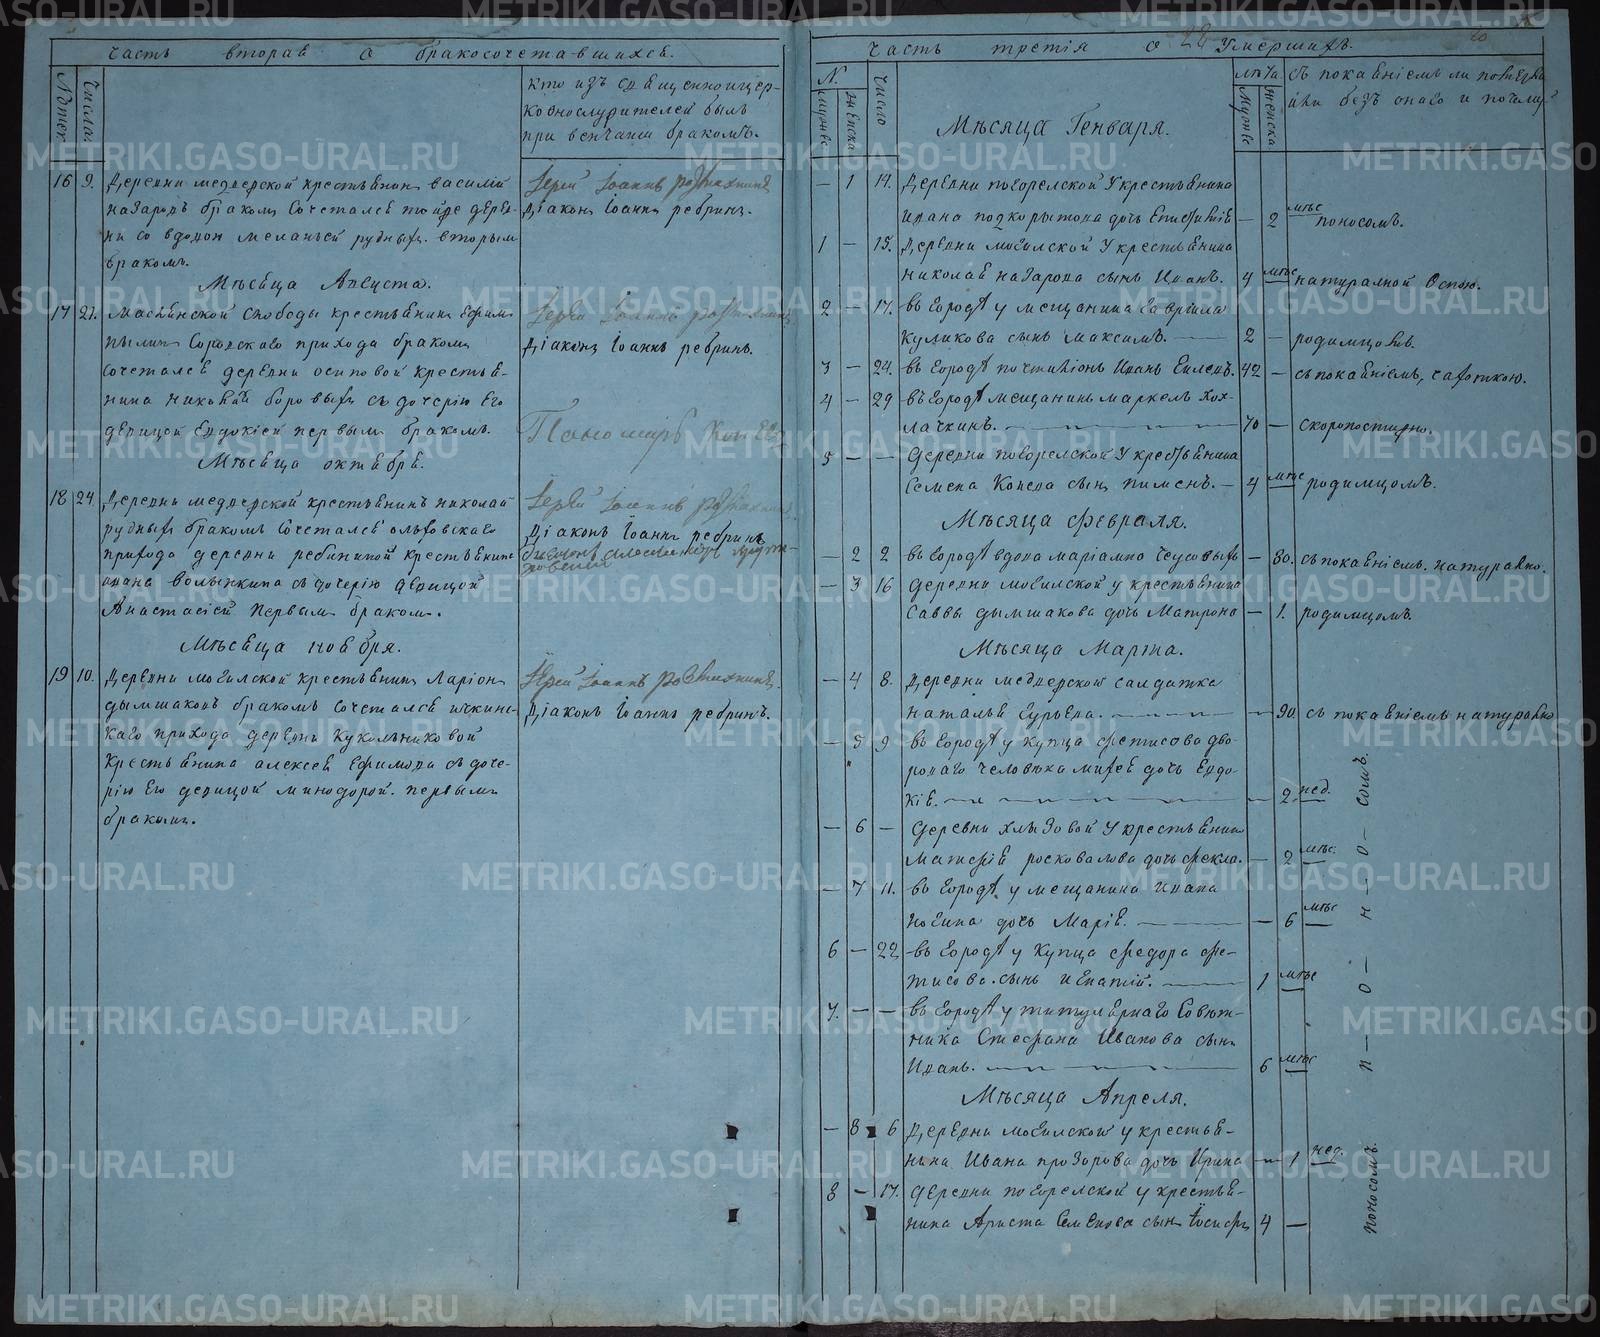 Часть вторая о бракосочетавшихся.
№ бтек
Числа
Кто изъ священноицер-
ковнослужителей былъ
при венчании бракомъ.
16 9. Деревни медверской крестьянин василий
назаровъ браком сочетался тойже дерев-
ни со вдовой меланьей рудных. вторым
браком.
Іерей Іоаннъ
Діаконъ Іоаннъ ребринъ.
Мѣсяца Августа.
17 21. Маслянской слободы крестьянинъ Ефим
пылин городскаго прихода браком
сочетался деревни осиповой крестья-
нина николая боровых съ дочерію Его
девицой Евдокіей первым браком.
Іерей Іоаннъ
Діаконъ Іоаннъ ребринъ.
Мѣсяца октября.
18 24 Деревни медверской крестьянинъ николай
рудныхъ браком сочетался ольховскаго
прихода деревни ребининой крестьянина
ивана волынкина съ дочерію девицой
Анастасіей первым браком.
Іерей Іоаннъ
Діаконъ Іоаннъ ребринъ
Мѣсяца ноября.
19 10. Деревни могилской крестьянинъ Ларіон
дымшаковъ браком сочетался ичкинс-
каго прихода деревни кукольниковой
крестьянина алексея Ефимова съ доче-
рію Его девицой минодорой. первым
браком.
Іерей Іоаннъ
Діаконъ Іоаннъ ребринъ.
Часть третія о умершихъ.
28
№.
мужие
женска
Число
лѣта
мужие
женска
съ покаяніемъ ли
или безъ онаго и почему
Мѣсяца Генваря.
— 1 14. Деревни погорелской у крестьянина
ивана подкорытова дочь Епистимія — 2 мѣс поносомъ.
1 — 15. Деревни могилской у крестьянина
николая назарова сынъ иванъ. 4 мѣс натуралной оспою.
2 — 17. въ городѣ у мещанина гавриила
Куликова сынъ максимъ. — 2 — родимцомъ.
3 — 24. въ городѣ почтиліонъ иванъ 42 — съ покаяніемъ, чахоткою.
4 — 29 въ городѣ мещанинъ маркелъ хох-
лачкинъ. — 70 — скоропостижно.
5 — — деревни погорелской у крестьянина
семена конева сынъ пименъ. — 4 мѣс родимцомъ.
Мѣсяца февраля.
— 2 2 въ городѣ вдова маріамна чусовыхъ — 80. съ покаяніемъ. натурално.
— 3 16 деревни могилской у крестьянина
Саввы дымшакова дочь Матрона — 1. родимцомъ.
Мѣсяца Марта.
— 4 8. деревни медверской салдатка
наталья гурьева. — 90. съ покаяніемъ натурално
— 5 9 въ городѣ у купца фетисова дво-
роваго человѣка дочь Евдо-
кія. — 2 нед.
— 6 — деревни хлызовой у крестьянина
матфія росковалова дочь фекла. — 2 мѣс.
— 7 11. въ городѣ у мещанина ивана
ногина дочь Марія. — 6 мѣс
6 — 22 въ городѣ у купца федора фе-
тисова. сынъ игнатій. — 1 мѣс
7. — — въ городѣ у титулярнаго совѣт-
ника Стефана Иванова сынъ
Иванъ. — 6 мѣс
п — о — н — о — сомъ.
Мѣсяца Апреля.
— 8 6 Деревни могилской у крестья-
нина Ивана прозорова дочь Ирина — 1 нед.
8 — 17. деревни погорелской у крестья-
нина Ариста семенова сынъ іосифъ 4 —
поносомъ.
METRIKI.GASO-URAL.RU